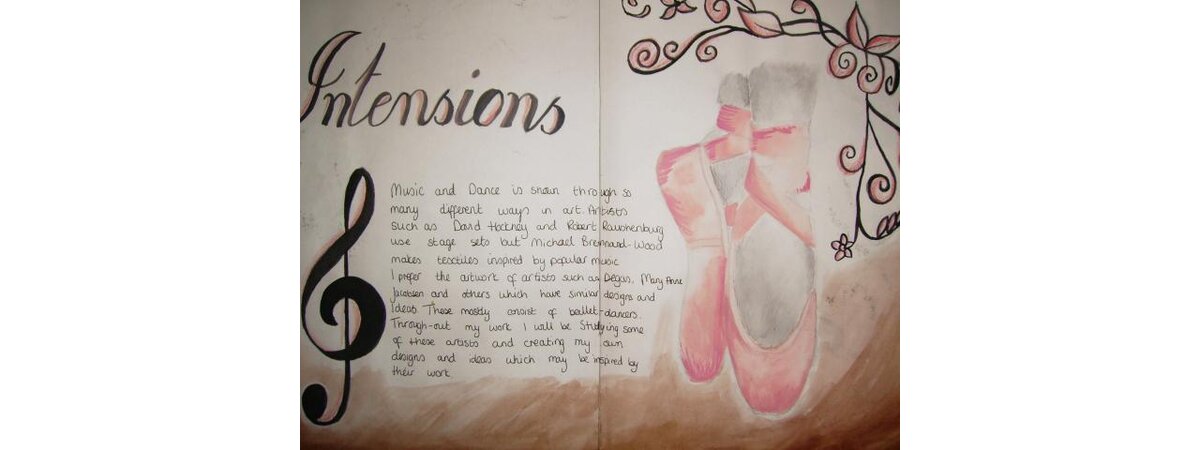 Intensions
Music and Dance is shown through so
many different ways in art. Artists
such as David Hockney and Robert Rauchenburg
use stage sets but Michael Brennard-Wood
makes textiles inspired by popular music
I prefer the artwork of artists such as Degas, Mary Anne
Jacobsen and others which have similar designs and
Ideas. These mostly consist of ballet dancers.
Through-out my work I will be Studying some
of these artists and creating my own
designs and ideas which may be inspired by
their work